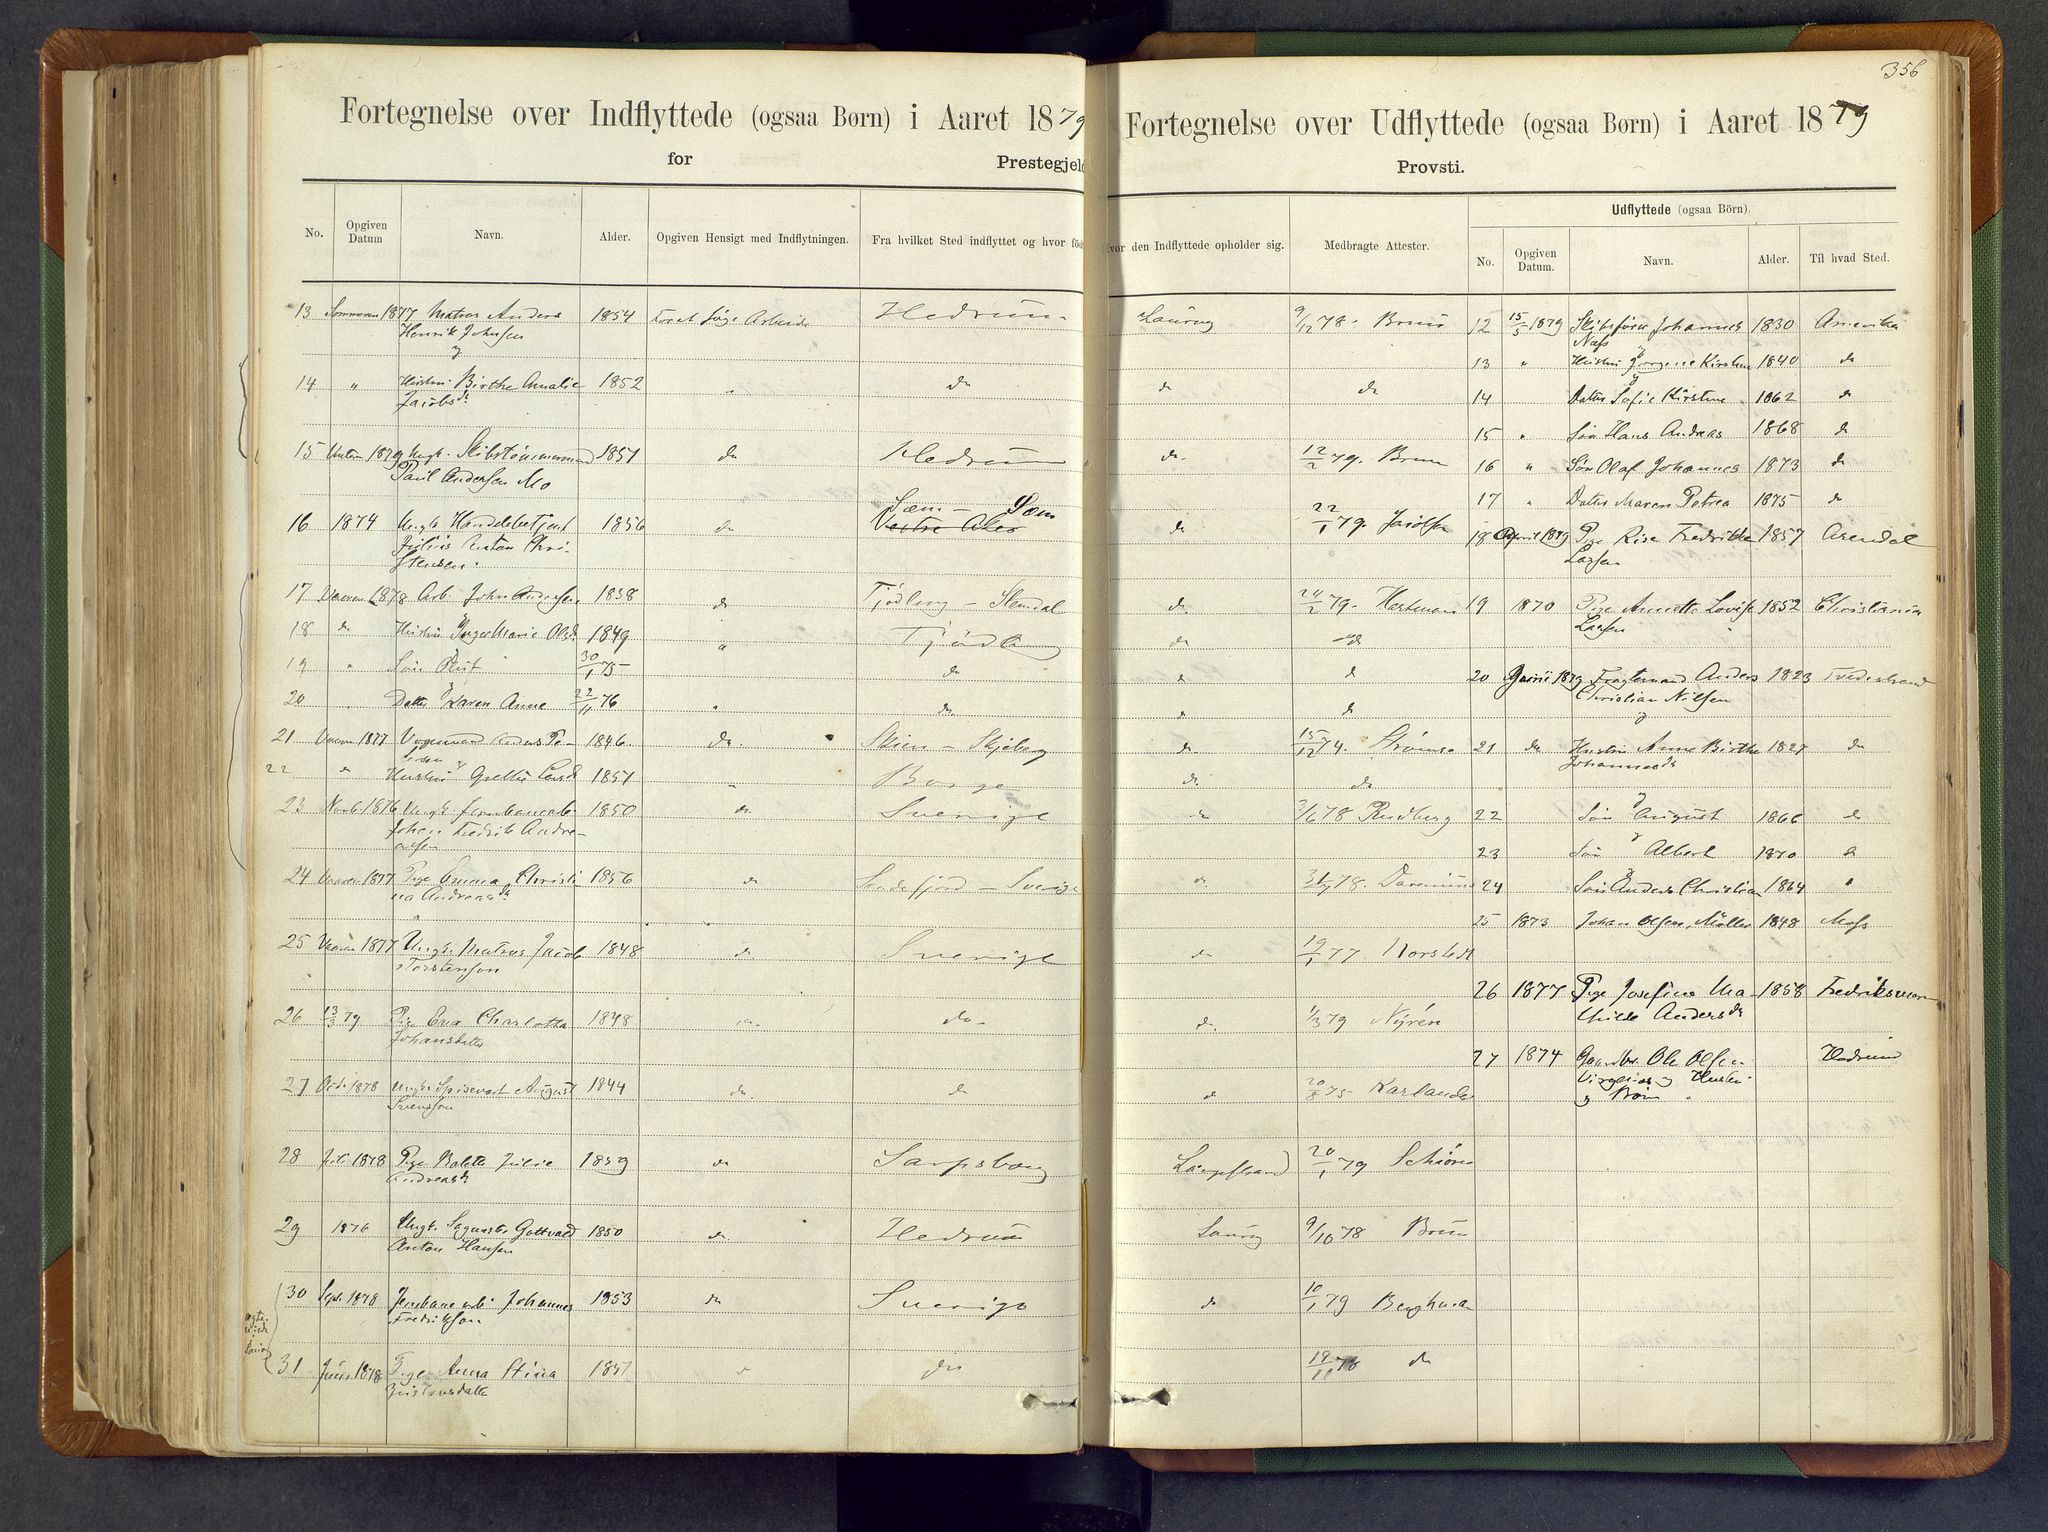 356
Fortegnelse over Indflyttede (ogsaa Børn) i Aaret 1879
for Prestegjeld
No. Opgiven Datum Navn. Alder. Opgiven Hensigt med Indflytningen. Fra hvilket Sted indflyttet og hvor født
13 Sommeren 1877 Matros Anders 1854 For at søge Arbeide Hedrum Laurvig 9/12 78. Brun
Henrik Johnsen
14 " Hustru Birthe Amalie 1852 " do do do
Jacobsd
15 1879 Ungk. Skibstømmermand 1851 do Hedrum do. 12/2 79. Brun
Paul Andersen Mo
16 1874 Ungk Handelsbetjent 1856 do Sæm - Sæm do 22/1 79.
Julius Anton Chri-
stensen.
17 1878 Arb. John Andersen 1838 do Tjødling - Slemdal do. 24/2 79. Hartmann
18 do Hustru Inger Marie Olsd 1849 " Tjødling do do
19 " Søn 30/1 75 do do do
20 " Datter Karen Anne 22/11 76 " do do do
21 1877 Pe- 1846 do. Skien - Skjeberg do 15/12 74.
22 do Hustru Grethe 1851 " Borge do do
23 Novb. 1876 Ungk. Jernbanearb. 1850 do Sverige do 3/6 78 Rudberg
Johan Fredrik Andre-
asen
24 1877 Pige Emma Christi- 1856 do Sandefjord - Sverige do 31/7 78.
na Andreasd
25 1877 Ungk. Matros Jacob 1848 do Sverige do 19/1 77 Norstedt
Torstenson
26 13/3 79 Pige Eva Charlotta 1848 do. do. do. 1/3 79 Nyrén
Johansdatter
27 1878 Ungk. August 1844 do do do 20/8 75 Karlander
Svensson
28 Juli 1878 Pige Bolette Julie 1859 do Sarpsborg Langestrand 20/1 79
Andreasd
29 1876 Ungk. Sagmester Gottvald 1850 do. Hedrum Laurvig 9/10 78 Brun
Anton Hansen
30 Sept. 1878 Jernbanearb. Johannes 1853 do Sverige do 10/1 79
Fredrikson
31 Juni 1878 Pige Anna Stina 1851 do 19/11 78 do
Gustavsdatter
Fortegnelse over Udflyttede (ogsaa Børn) i Aaret 1879
Provsti.
Hvor den Indflyttede opholder sig. Medbragte Attester. Udflyttede (ogsaa Börn).
No. Opgiven Datum. Navn. Alder. Til hvad Sted.
12 15/5 1879 Skibsfører Johannes 1830 Amerika
Næss
13 " Hustru Jørgine Kirstine 1840 do
14 Datter Sofie Kirstine 1862 do
15 " Søn Hans Andreas 1868 do
16 " Søn Olaf Johannes 1873 do
17 " Datter Maren Petrea 1875 do
18 April 1879 Pige Fredrikke 1857 Arendal
Larsen
19 1870 Pige Annette Lovise 1852 Christiania
Larsen
20 1879 Fragtemand Anders 1823
Christian Nilsen
21 do Hustru Anne Birthe 1827 do
Johannesd
22 Søn August 1866 do
23 Søn Albert 1870 do
24 Søn Anders Christian 1864 "
25 1873 Johan Olsen Møller 1848 Moss
26 1877 Pige Josefine Ma- 1858 Fredriksværn
thilde Andersd
27 1874 Gaardbr. Ole Olsen Hedrum
og Hustru
og Børn